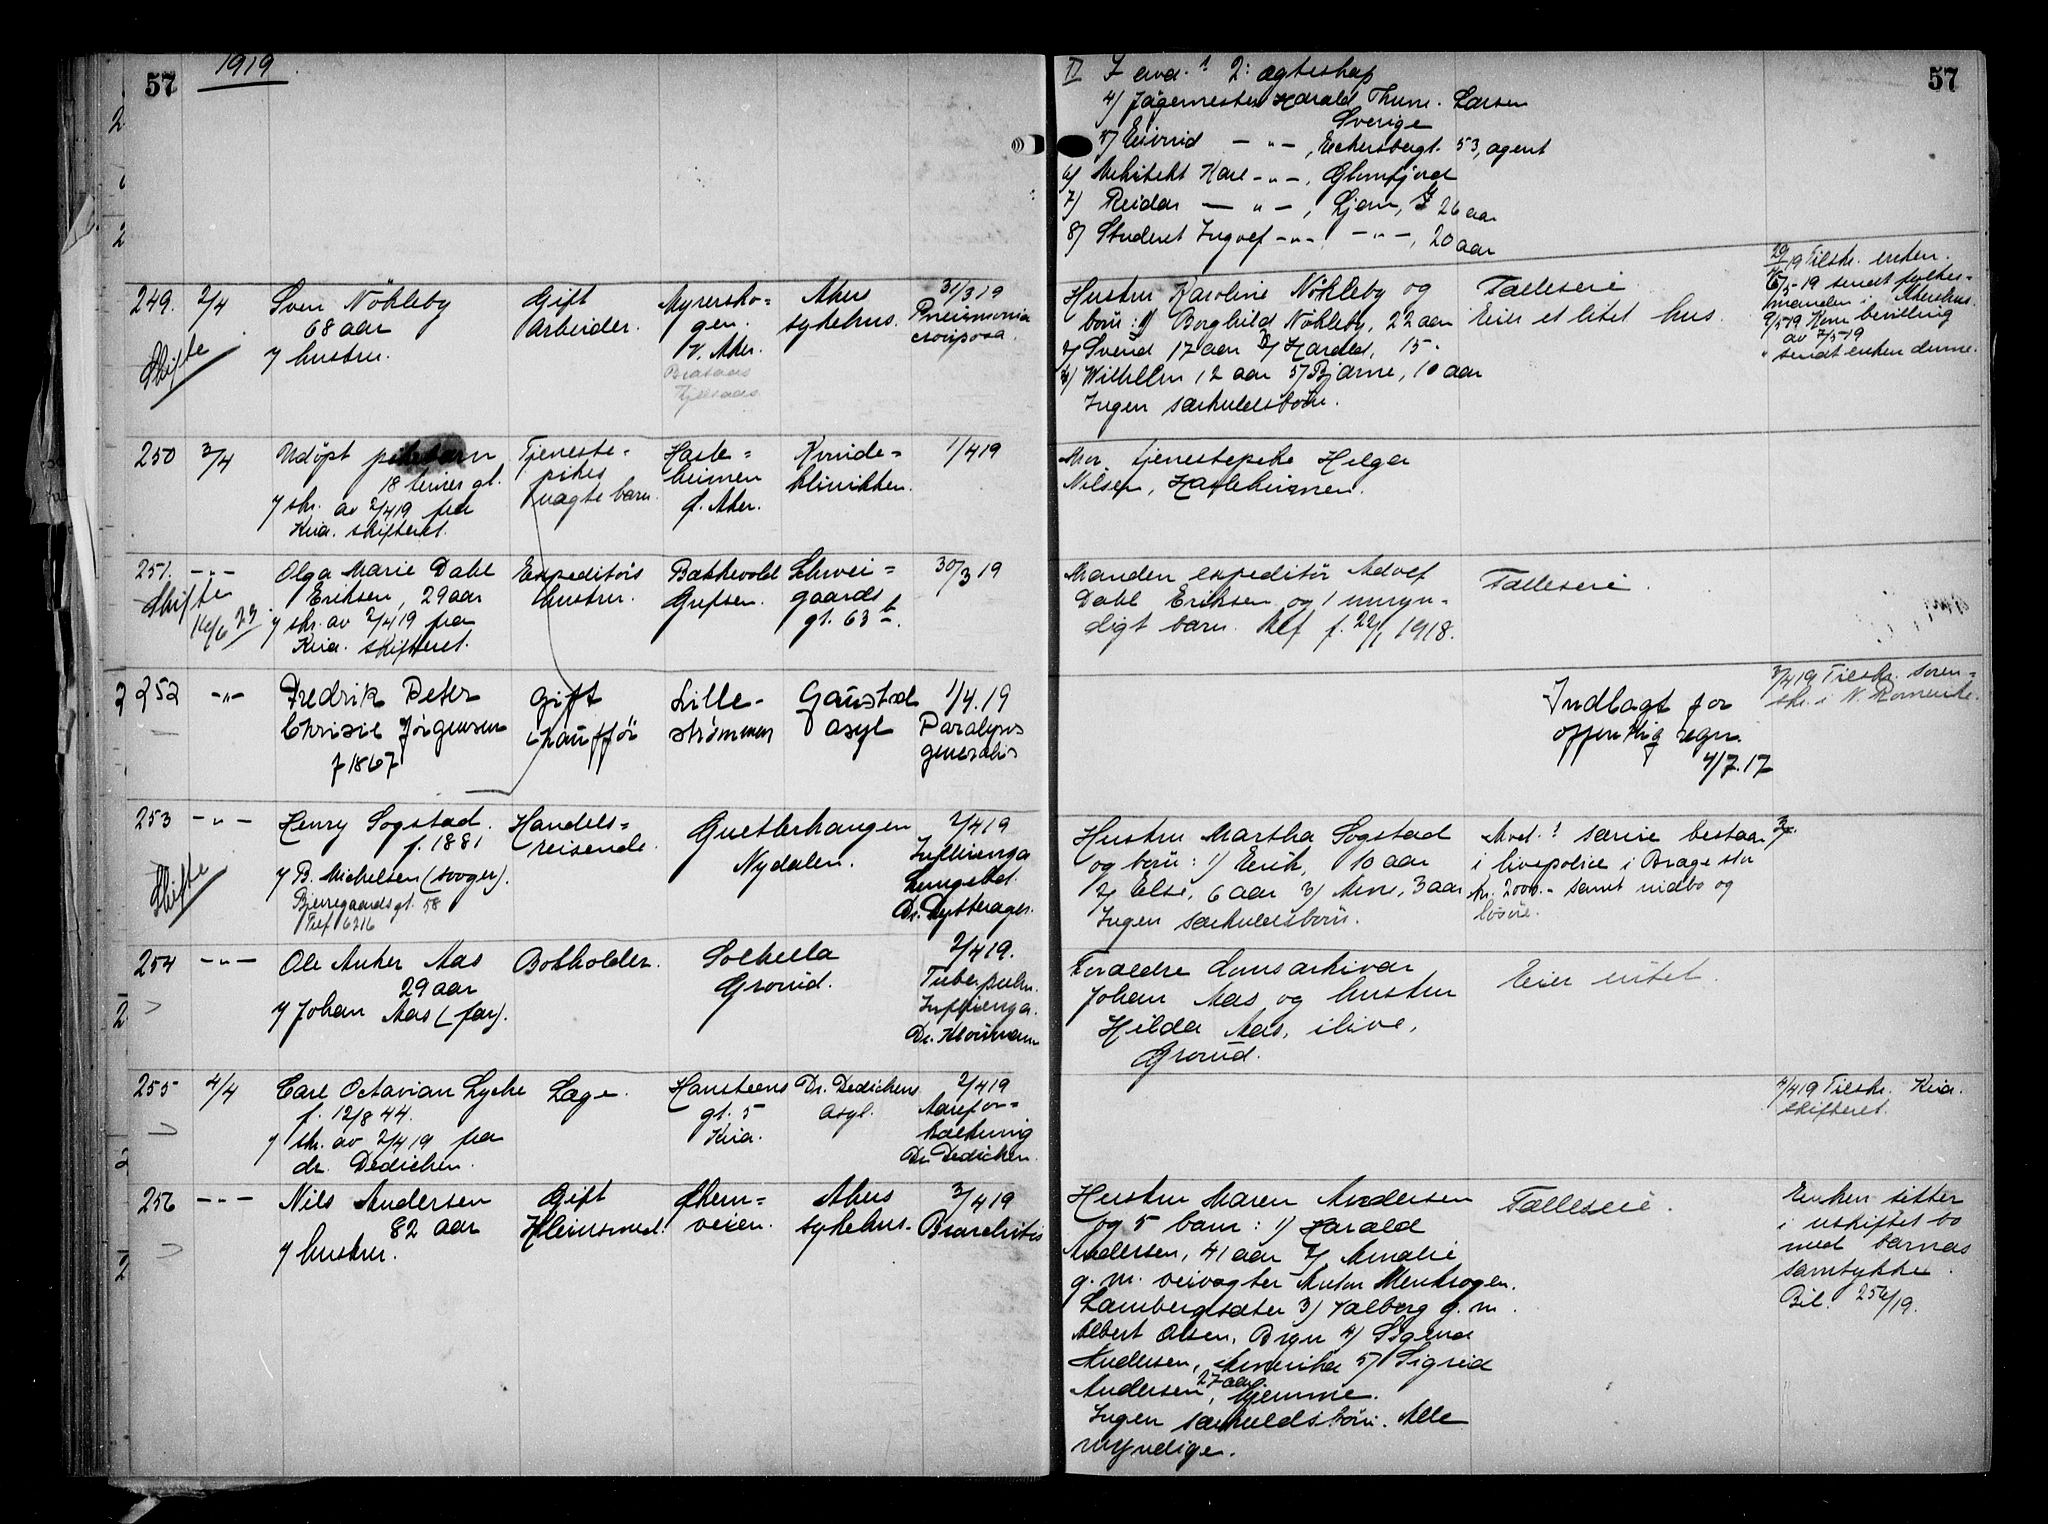 57
1919
249. 2/4
Skifte
Sven Nökleby
68 aar
v/ hustru.
Gift
Arbeider.
Myrersko-
gen.
V. Aker.
Brataas
Kjelsaas
Akers
sykehus.
31/3 19
Pneumonia
crouposa.
250 3/4
Udöpt pikebarn
18 timer gl.
v/ skr. av 2/4 19 fra
Kria. skifteret.
Tjeneste-
pikes
uægte barn.
Hasle-
heimen
Ø. Aker.
Kvinde-
klinikken.
1/4 19
251. -"-
Skifte
16/6 23
Olga Marie Dahl
Eriksen, 29 aar
v/ skr. av 2/4 19 fra
Kria. skifteret.
Expeditörs
hustru.
Bakkevold
Grefsen.
Schwei-
gaards
gt. 63 b.
30/3 19
252 -"-
Fredrik Peter
Chrisie Jörgensen
f 1867
Gift
chaufför
Lille-
strømmen
Gaustad
asyl
1/4.19
Paralysis
generalis
253 -"-
Skifte
Henry Sogstad.
f. 1881
v/ B. Michelsen (svoger).
Bjerregaardsgt. 58
Telf 6216
Handels-
reisende.
Nydalen.
2/4 19
Influenza
Lungebet.
254 -"-
Ole Anker Aas
29 aar
v/ Johan Aas (far).
Bokholder.
Solhella
Grorud.
2/4 19.
Tuber. pulm.
Influenza.
255 4/4
Carl Octavian Lyche
f. 12/8 44.
v/ skr. av 2/4 19 fra
dr. Dedichen.
Læge.
Hansteens
gt. 5
Kria.
Dr. Dedichens
asyl.
2/4 19
Aarefor-
kalkning
Dr. Dedichen.
256 -"-
Nils Andersen
82 aar
v/ hustru.
Gift
Kleinsmed.
Ekern-
veien.
Akers
sykehus.
3/4 19
Bronchitis
57
II I avd. ? 2: ægteskap
4) Jägermester Harald Thune-Larsen
Sverige
5) Eivind -"-, Eckersbergt. 53, agent
6) Arkitekt Kare -"-, Glomfjord
7) Reidar -"-, Ljan, 26 aar
8) Student Ingolf -"-, -"-, 20 aar
Hustru Karoline Nökleby og
børn: 1) Borghild Nökleby, 22 aar
2) Svend 17 aar 3) Harald, 15-
4) Wilhelm 12 aar 5) Bjarne, 10 aar
Ingen særkuldsbörn.
Fælleseie
Eier et litet hus.
29/4 19 Tilskr. enken.
6/5-19 sendt fylkes-
manden i Akershus.
9/5-19 Kom bevilling
av 7/5-19
" sendt enken denne.
Mor. tjenestepike Helga
Nilsen, Hasleheimen.
Manden expeditör Adolf
Dahl Eriksen og 1 umyn-
digt barn. Alf f. 22/1 1918.
Fælleseie.
Indlagt for
offentlig regn.
4/7.17
3/4 19 Tilskr. soren-
skr. i N. Romerike.
Hustru Martha Sogstad
og börn: 1) Erik, 10 aar
2) Else, 6 aar 3) Arne, 3 aar
Ingen særkuldsbörn.
Mvd. ? særeie bestaar
i livspolice i Brage stor
kr. 2000.- samt indbo og
lösöre.
3/4.
Foreldre domsarkivar
Johan Aas og hustru
Hilda Aas, ilive,
Grorud.
Eier intet.
4/4 19 Tilskr. Kria.
skifteret.
Hustru Maren Andersen
og 5 barn: 1) Harald
Andersen, 41 aar 2) Amalie
g. m. veivogter Anton Mentzogen.
Lambergsæter 3) Valborg g. m.
Albert Olsen, Bryn 4) Sigurd
Andersen, Amerika 5) Sigrid
Andersen, 27 aar. hjemme.
Ingen særkuldsbörn. Alle
myndige.
Fælleseie.
Enken sitter
i uskiftet bo
med barnas
samtykke.
Bil. 256/19.